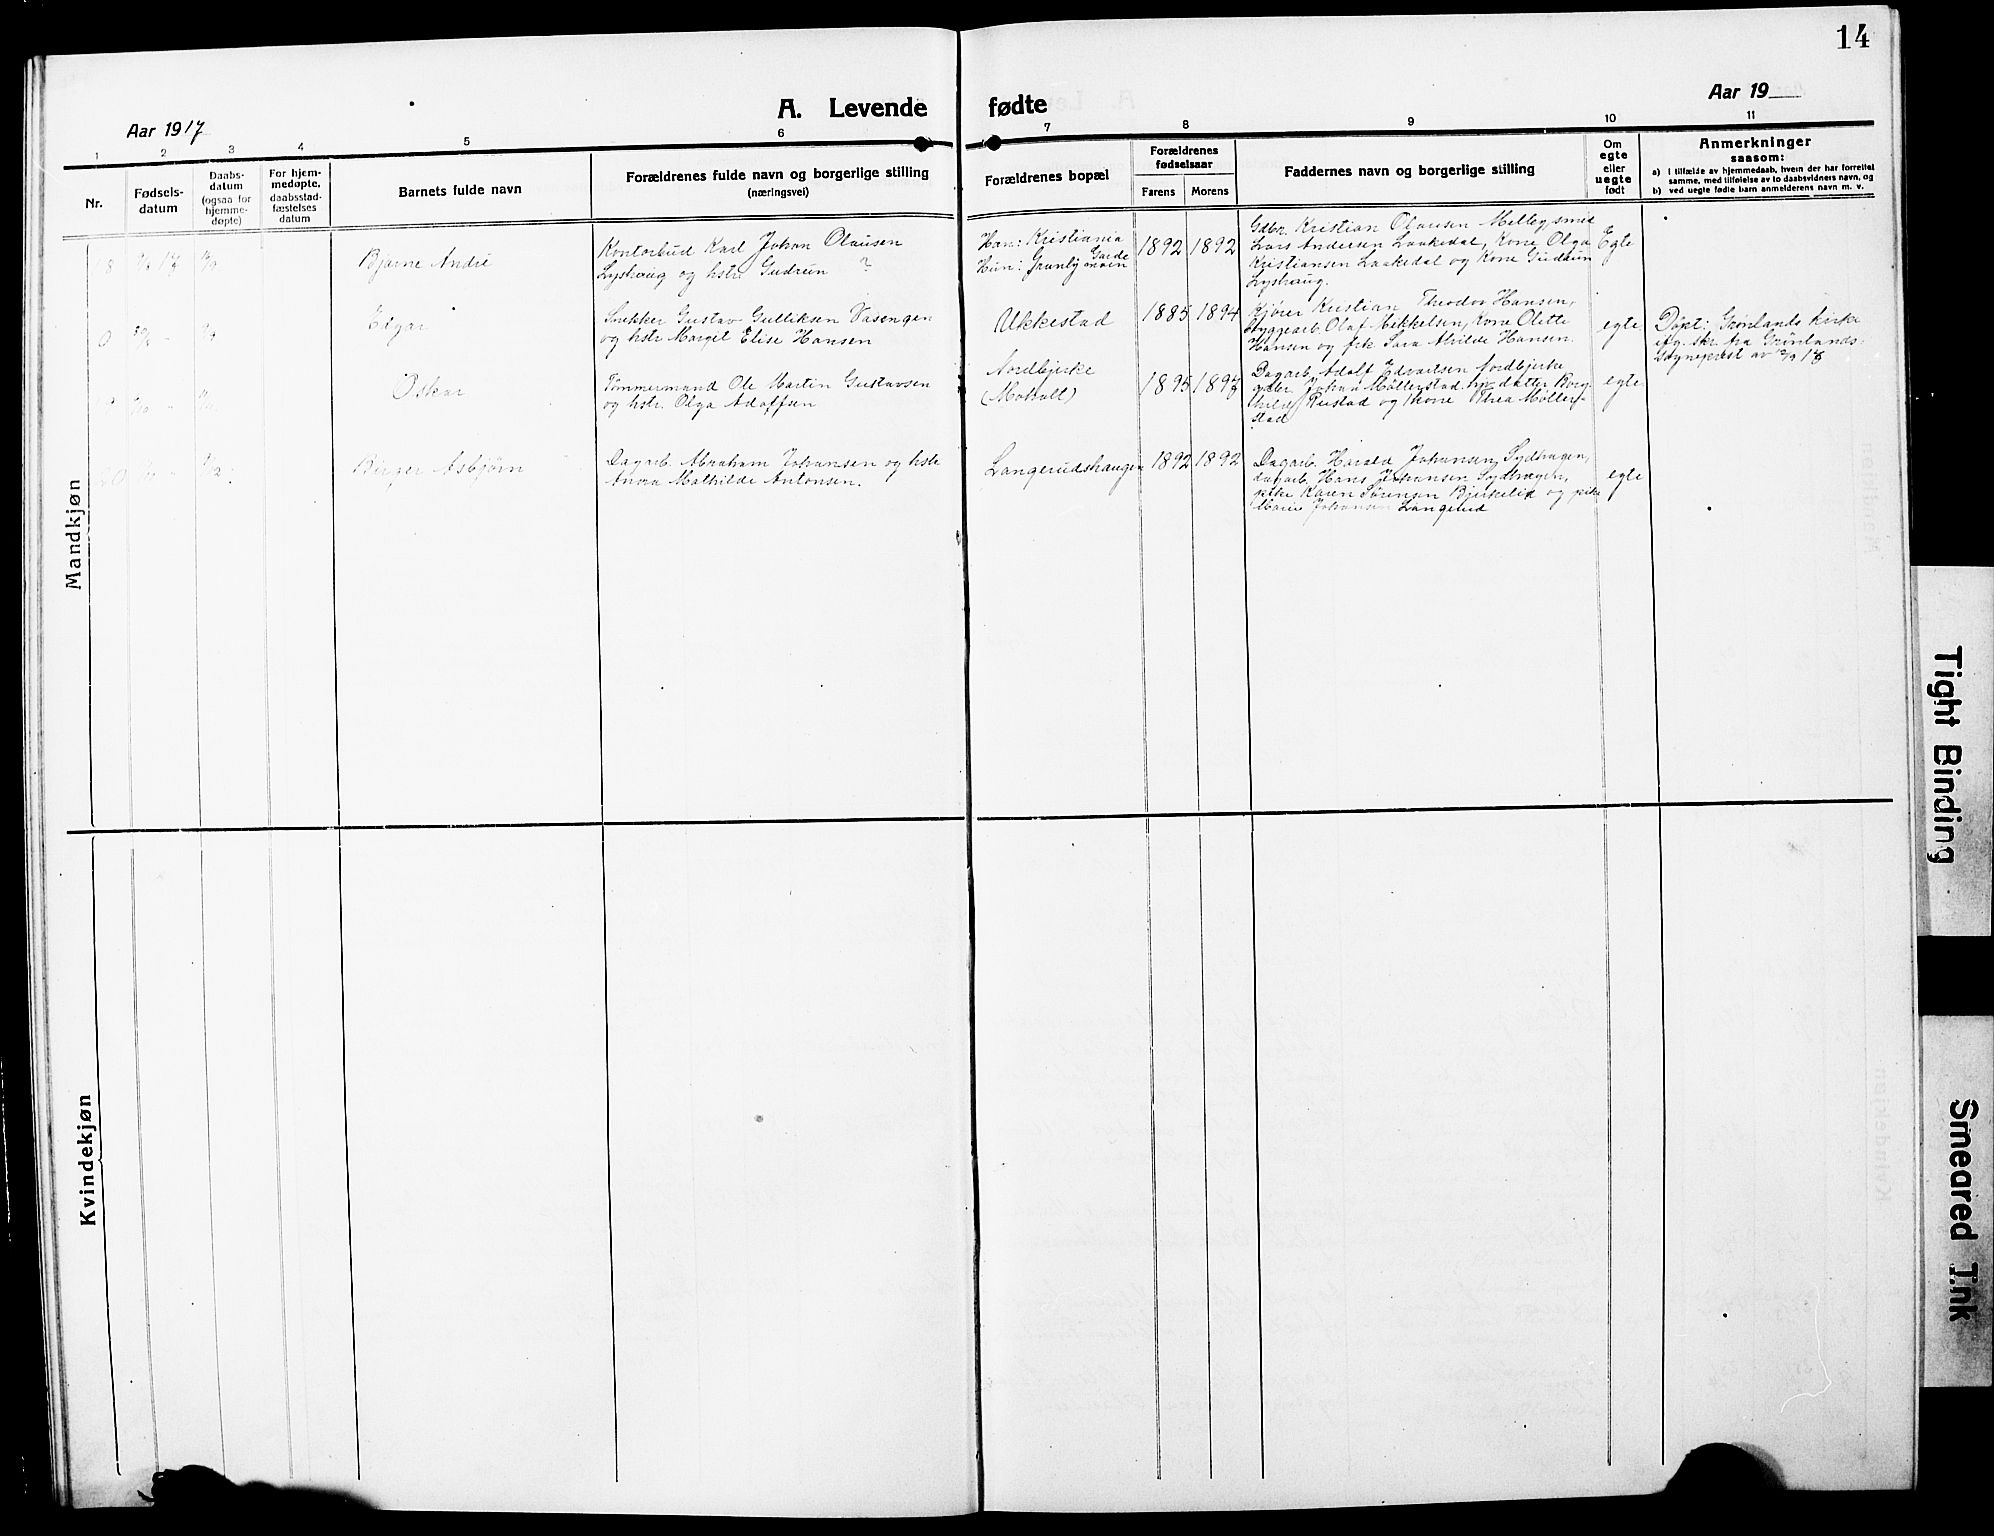 14
A. Levende fødte
Aar 1917
Aar 19
1 2 3 4 5 6 7 8 9 10 11
Nr.
Fødsels-
datum
Daabs-
datum
(ogsaa for
hjemme-
døpte)
For hjem-
medøpte,
daabsstad-
fæstelses
datum
Barnets fulde navn
Forældrenes fulde navn og borgerlige stilling
(næringsvei)
Forældrenes bopæl
Forældrenes
fødselsaar
Farens Morens
Faddernes navn og borgerlige stilling
Om
egte
eller
uegte
født
Anmerkninger
saasom:
a) i tilfælde av hjemmedaab, hvem der har forrettet
samme, med tilføielse av to daabsvidners navn, og
b) ved uegte fødte barn anmelderens navn m. v.
Mandkjøn
8
Bjarne André
Kontorbud Karl Johan Olausen
Lyshaug og hstr. Gudrun ?
Han: Kristiania
Hun: Granly Gardemoen
1892 1892
Gdbr. Kristian Olausen Melby, smed
Lars Andersen Laakedal, Kone Olga
Kristiansen Laakedal og Kone Gudrun
Lyshaug.
Egte
Edgar
Snekker Gustav Gulliksen Vasengen
og hstr. Margit Elise Hansen
Ukkestad
1885 1894
Kjører Kristian Theodor Hansen,
byggearb. Olaf Mikkelsen, Kone Olette
Hansen og frk. Sara Alvilde Hansen.
egte
Døpt: Grønlands kirke
efg. skr. fra Grønlands
Sogneprest av
Oskar
Tømmermand Ole Martin Gustavsen
og hstr. Olga Adolfsen
Nordbjerke
1895 1897
Dagarb. Adolf Edvartsen Nordbjerke
gdbr. Johan Møllerstad, datter Borg-
hild Rustad og kone Thea Møller-
stad
egte
20
Birger Asbjørn
Dagarb. Abraham Johansen og hstr.
Anna Mathilde Antonsen.
Langerudshaugen
1892 1892
Dagarb. Harald Johansen Sydhagen,
dagarb. Hans Johansen Sydhagen,
pike Karen Sørensen Bjerkelid og pike
Maren Johansen Langerud
egte
Kvindekjøn
Tight Binding
Smeared Ink